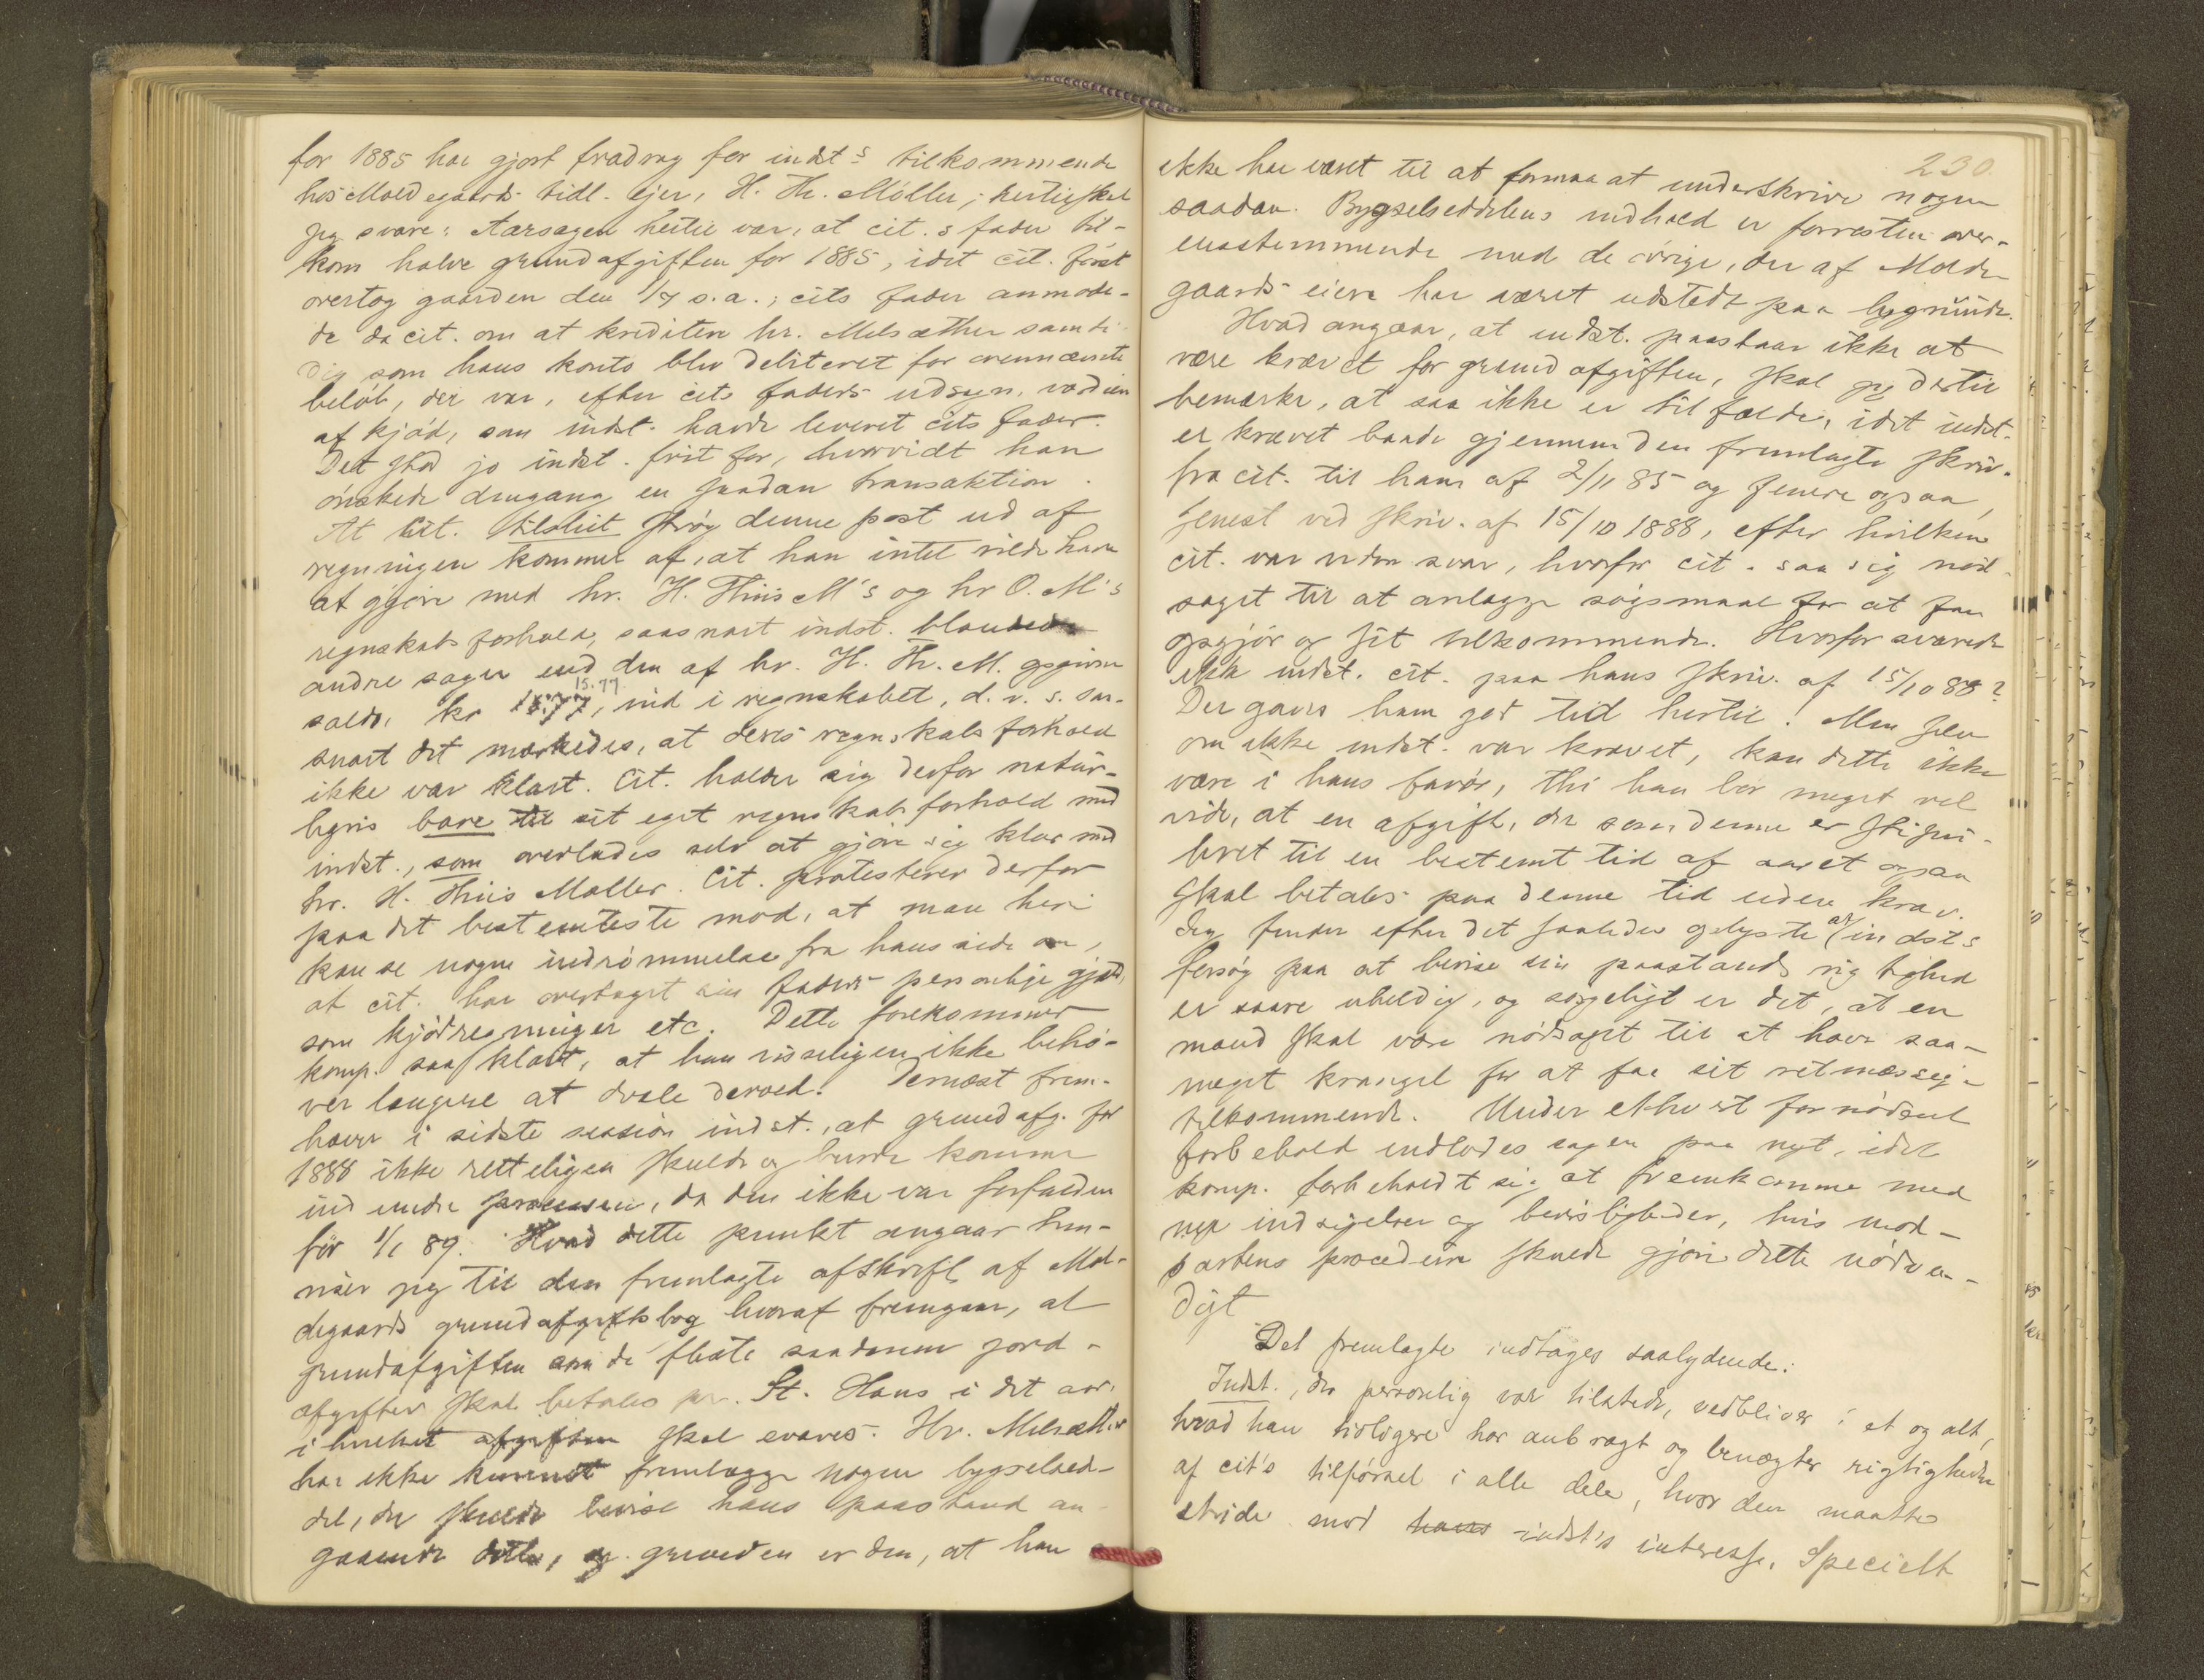 for 1885 har gjort fradrag for indst.s tilkommende
hos Moldegaards tidl. ejer, H. Th. Møller; hertil skal
jeg svare: Aarsagen hertil var, at cit.s fader til-
kom halve grundafgiften for 1885, idet cit. først
overtog gaarden den 1/7 s.a.; cits fader anmode-
de da cit. om at kreditere hr. Melsæther samti-
dig som hans konto blev debiteret for ovennævnte
beløb, der var, efter cits faders udsagn, værdien
af kjød, som indst. havde leveret cits fader.
Det stod jo indst. frit for, hvorvidt han
ønskede dengang en saadan transaktion.
At Cit. tilsluit strøg denne post ud af
regningen kommer af, at han intet vilde have
at gjøre med hr. H. Thiis M's og hr O. M's
regnskabsforhold, saasnart indst. blandede
andre sager end den af hr. H. Th. M. opgivne
15.77
saldo, kr 15.77, ind i regnskabet, d. v. s. saa-
snart det mærkedes, at deres regnskabsforhold
ikke var klart. Cit. holder sig derfor natur-
ligvis bare til sit eget regnskabsforhold med
indst., som overlades selv at gjøre sig klar med
hr. H. Thiis Møller. Cit. protesterer derfor
paa det bestemteste mod, at man heri
kan se nogen indrømmelse fra hans side om,
at cit. har overtaget sin faders personlige gjæld,
som kjødregninger etc. Dette forekommer
komp. saa klart, at han visseligen ikke behø-
ver længere at dvæle derved. Dernæst frem-
hæver i sidste session indst., at grundafg. for
1888 ikke retteligen skulde og burde komme
ind under processen, da den ikke var forfalden
før 1/1 89. Hvad dette punkt angaar hen-
viser jeg til den fremlagte afskrift af Mol-
degaards grundafgiftsbog hvoraf fremgaar, at
grundafgiften som de fleste saadanne jord-
afgifter skal betales pr. St. Hans i det aar,
i hvilket afgiften skal svares. Hr. Melsæther
har ikke kunnet fremlægge nogen bygselsed-
del, der skulde bevise hans paastand an-
gaaende dette, og grunden er den, at han
230.
ikke har været til at formaa at underskrive nogen
saadan. Bygselseddelens indhold er forresten over-
ensstemmende med de øvrige, der af Molde-
gaards eiere har været udstedt paa bygrunde.
Hvad angaar, at indst. paastaar ikke at
være krævet for grundafgiften, skal jeg dertil
bemærke, at saa ikke er tilfælde, idet indst.
er krævet baade gjennem den fremlagte skriv.
fra cit. til ham af 2/11 85 og senere ogsaa,
senest ved skriv. af 15/10 1888, efter hvilken
cit. var uden svar, hvorfor cit. saa sig nød-
saget til at anlægge søgsmaal for at faa
opgjør og sit tilkommende. Hvorfor svarede
ikke indst. cit. paa hans skriv. af 15/10 88?
Der gaves ham god tid hertil! Men selv
om ikke indst. var krævet, kan dette ikke
være i hans favør, thi han bør meget vel
vide, at en afgift, der som denne er stipu-
leret til en bestemt tid af aaret ogsaa
skal betales paa denne tid uden krav.
Jeg finder efter det saaledes oplyste at indsts
forsøg paa at bevise sin paastands rigtighed
er saare uheldig, og sørgeligt er det, at en
mand skal være nødsaget til at have saa-
meget krangel for at faa sit retmæssige
tilkommende. Under ethvert fornødent
forbehold indlades sagen paa nyt, idet
komp. forbeholdt sig at fremkomme med
nye indsigelser og bevisligheder, hvis mod-
partens procedure skulde gjøre dette nødven-
digt
Det fremlagte indtages saalydende:
Indst., der personlig var tilstede, vedbliver i et og alt,
hvad han tidligere har anbragt og benægter rigtigheden
af cit's tilførsel i alle dele, hvor den maatte
stride mod hans indst's interesse. Specielt